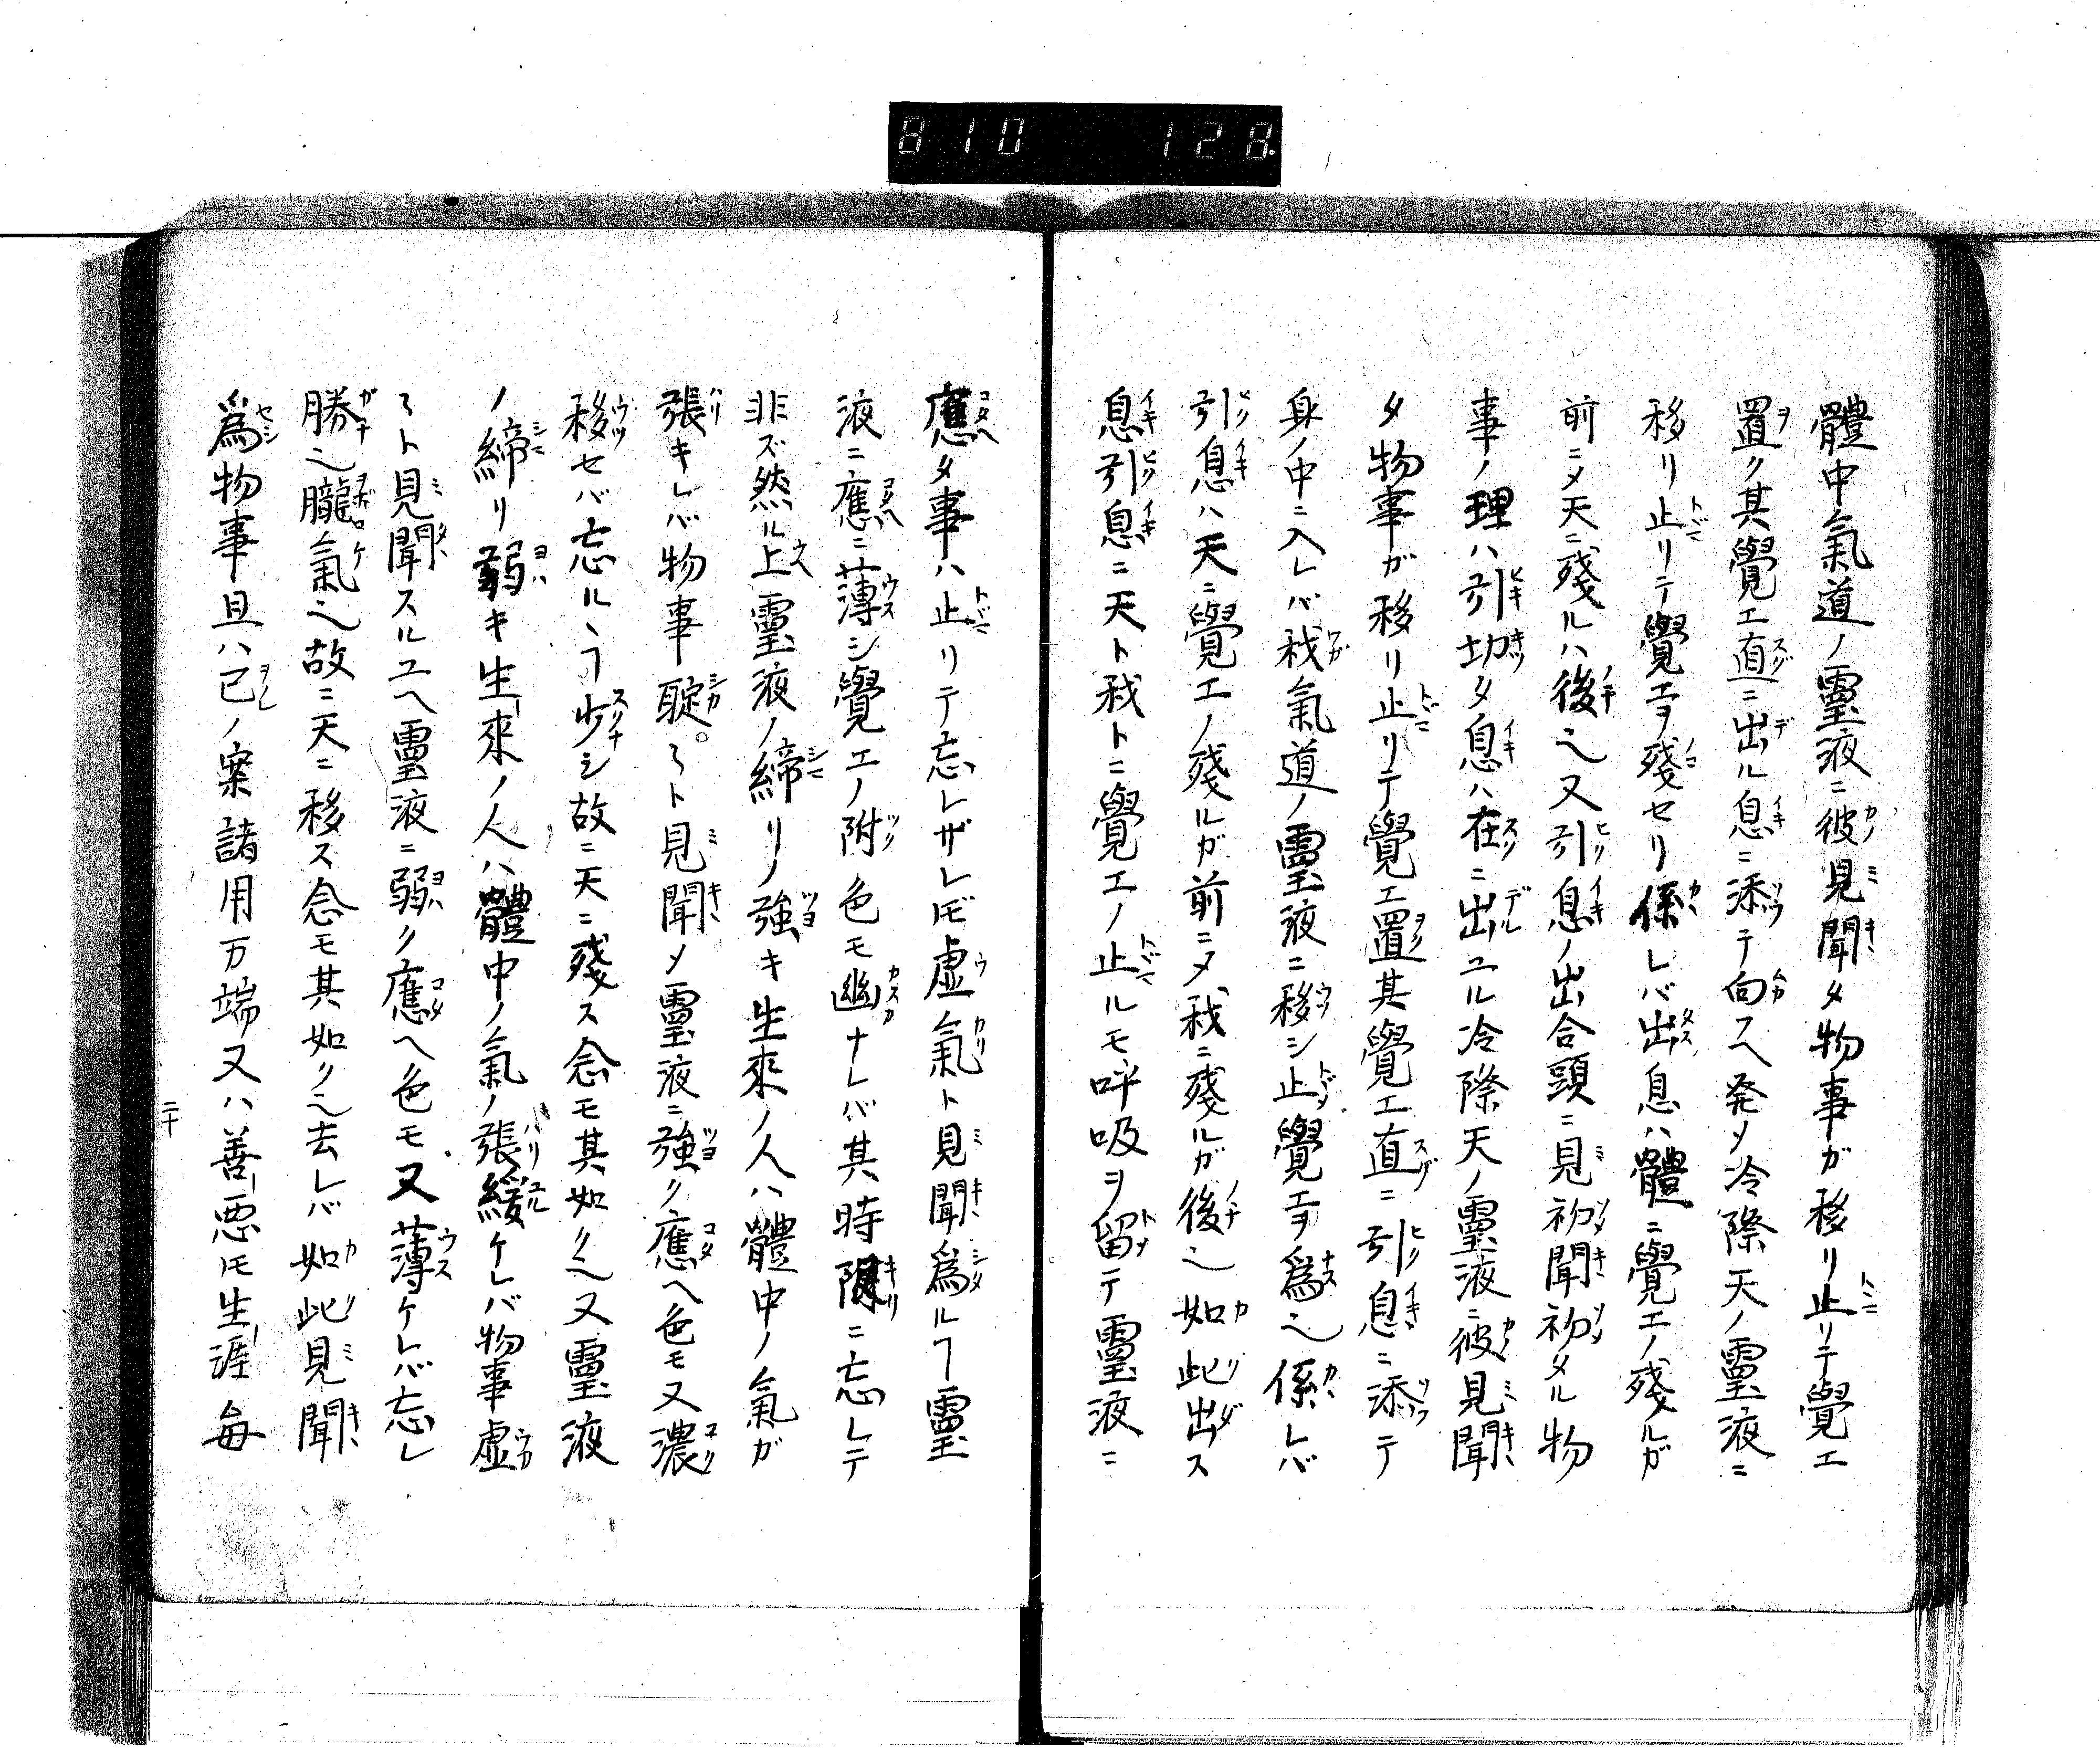 810 128
體中氣道ノ靈液ニ彼見聞タ物事ガ移リ止リテ覺エ
置ク其覺エ直ニ出ル息ニ添テ向フヘ発メ冷際天ノ靈液ニ
移リ止リテ覺エヲ殘セリ係レバ出息ハ體ニ覺エノ殘ルガ
前ニメ天ニ殘ルハ後之又引息ノ出合頭ニ見初聞初タル物
事ノ理ハ引切タ息ハ在ニ出ユル冷際天ノ靈液ニ彼見聞
タ物事ガ移リ止リテ覺エ置其覺エ直ニ引息ニ添テ
身ノ中ニ入レバ我氣道ノ靈液ニ移シ止覺エヲ爲之係レバ
引息ハ天ニ覺エノ殘ルガ前ニメ我ニ殘ルガ後之如此出ス
息引息ニ天ト我トニ覺エノ止ルモ呼吸ヲ留テ靈液ニ
應タ事ハ止リテ忘レザレ𪜈虚氣ト見聞爲ルヿ靈
液ニ應ニ薄シ覺エノ附色モ幽ナレバ其時限ニ忘レテ
非ズ然ル上靈液ノ締リノ強キ生來ノ人ハ體中ノ氣ガ
張キレバ物事聢〻ト見聞メ靈液ニ強ク應ヘ色モ又濃
移セバ忘ルヽヿ少シ故ニ天ニ殘ス念モ其如ク之又靈液
ノ締リ弱キ生來ノ人ハ體中ノ氣ノ張緩ケレバ物事虚
〻ト見聞スルユヘ靈液ニ弱ク應ヘ色モ又薄ケレバ忘レ
勝之朧氣之故ニ天ニ移ス念モ其如ク之去レバ如此見聞
爲物事且ハ己ノ案諸用万端又ハ善悪𪜈生涯毎
二十